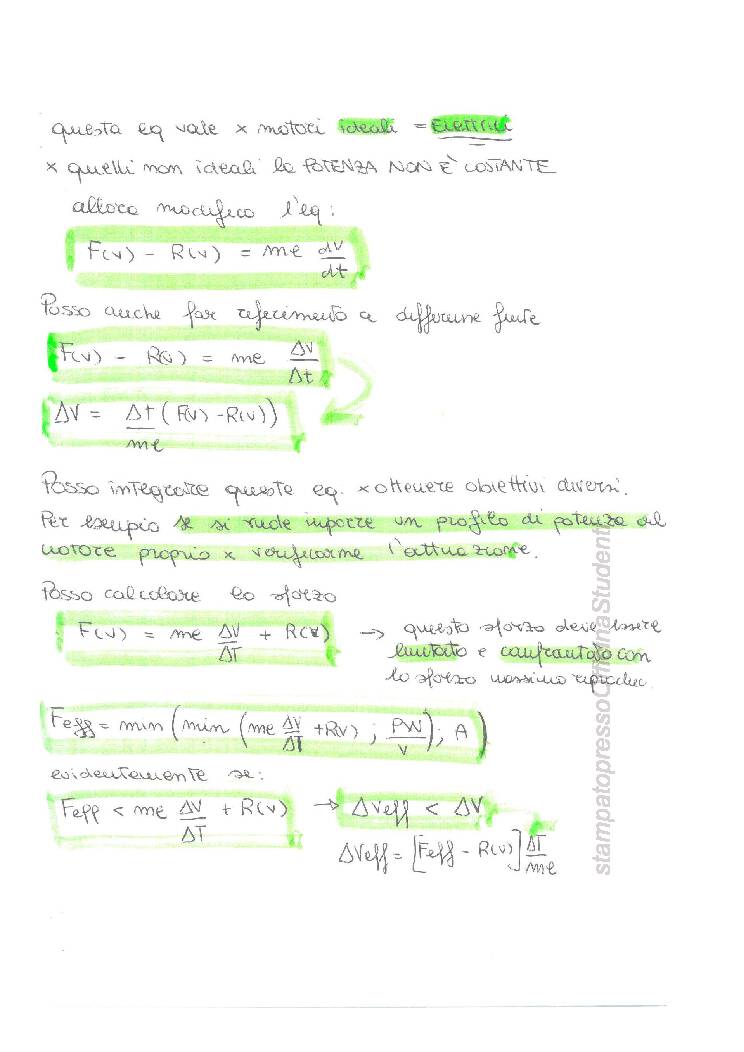 questa eq vale x motori ideali = Elettrici
x quelli non ideali la POTENZA NON È COSTANTE
allora modifico l'eq:
F(v) - R(v) = me dv/dt
Posso anche far riferimento a differenze finite
F(v) - R(v) = me ΔV/Δt
ΔV = Δt/me (F(v) - R(v))
Posso integrare queste eq. x ottenere obiettivi diversi.
Per esempio se si vuole imporre un profilo di potenza al
motore proprio x verificarne l'attuazione.
Posso calcolare lo sforzo
F(v) = me ΔV/ΔT + R(v) → questo sforzo deve essere
limitato e confrontato con
lo sforzo massimo riproduc.
Feff = min (min (me ΔV/ΔT + R(v) ; PW/V) ; A)
evidentemente se:
Feff < me ΔV/ΔT + R(v) → ΔVeff < ΔV
ΔVeff = [Feff - R(v)] ΔT/me
stampatopressoCthinaStudenti